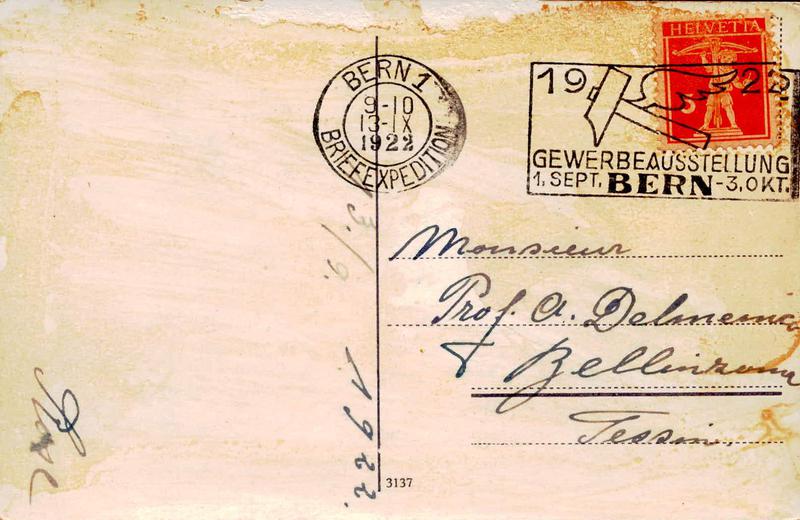 HELVETIA
5
BERN 1
9-10
13-IX
1922
BRIEFEXPEDITION
1922
GEWERBEAUSSTELLUNG
1. SEPT. BERN - 3. OKT.
Monsieur
Prof. A.
Bellinzona
Tessin.
3./9.
1922.
3137